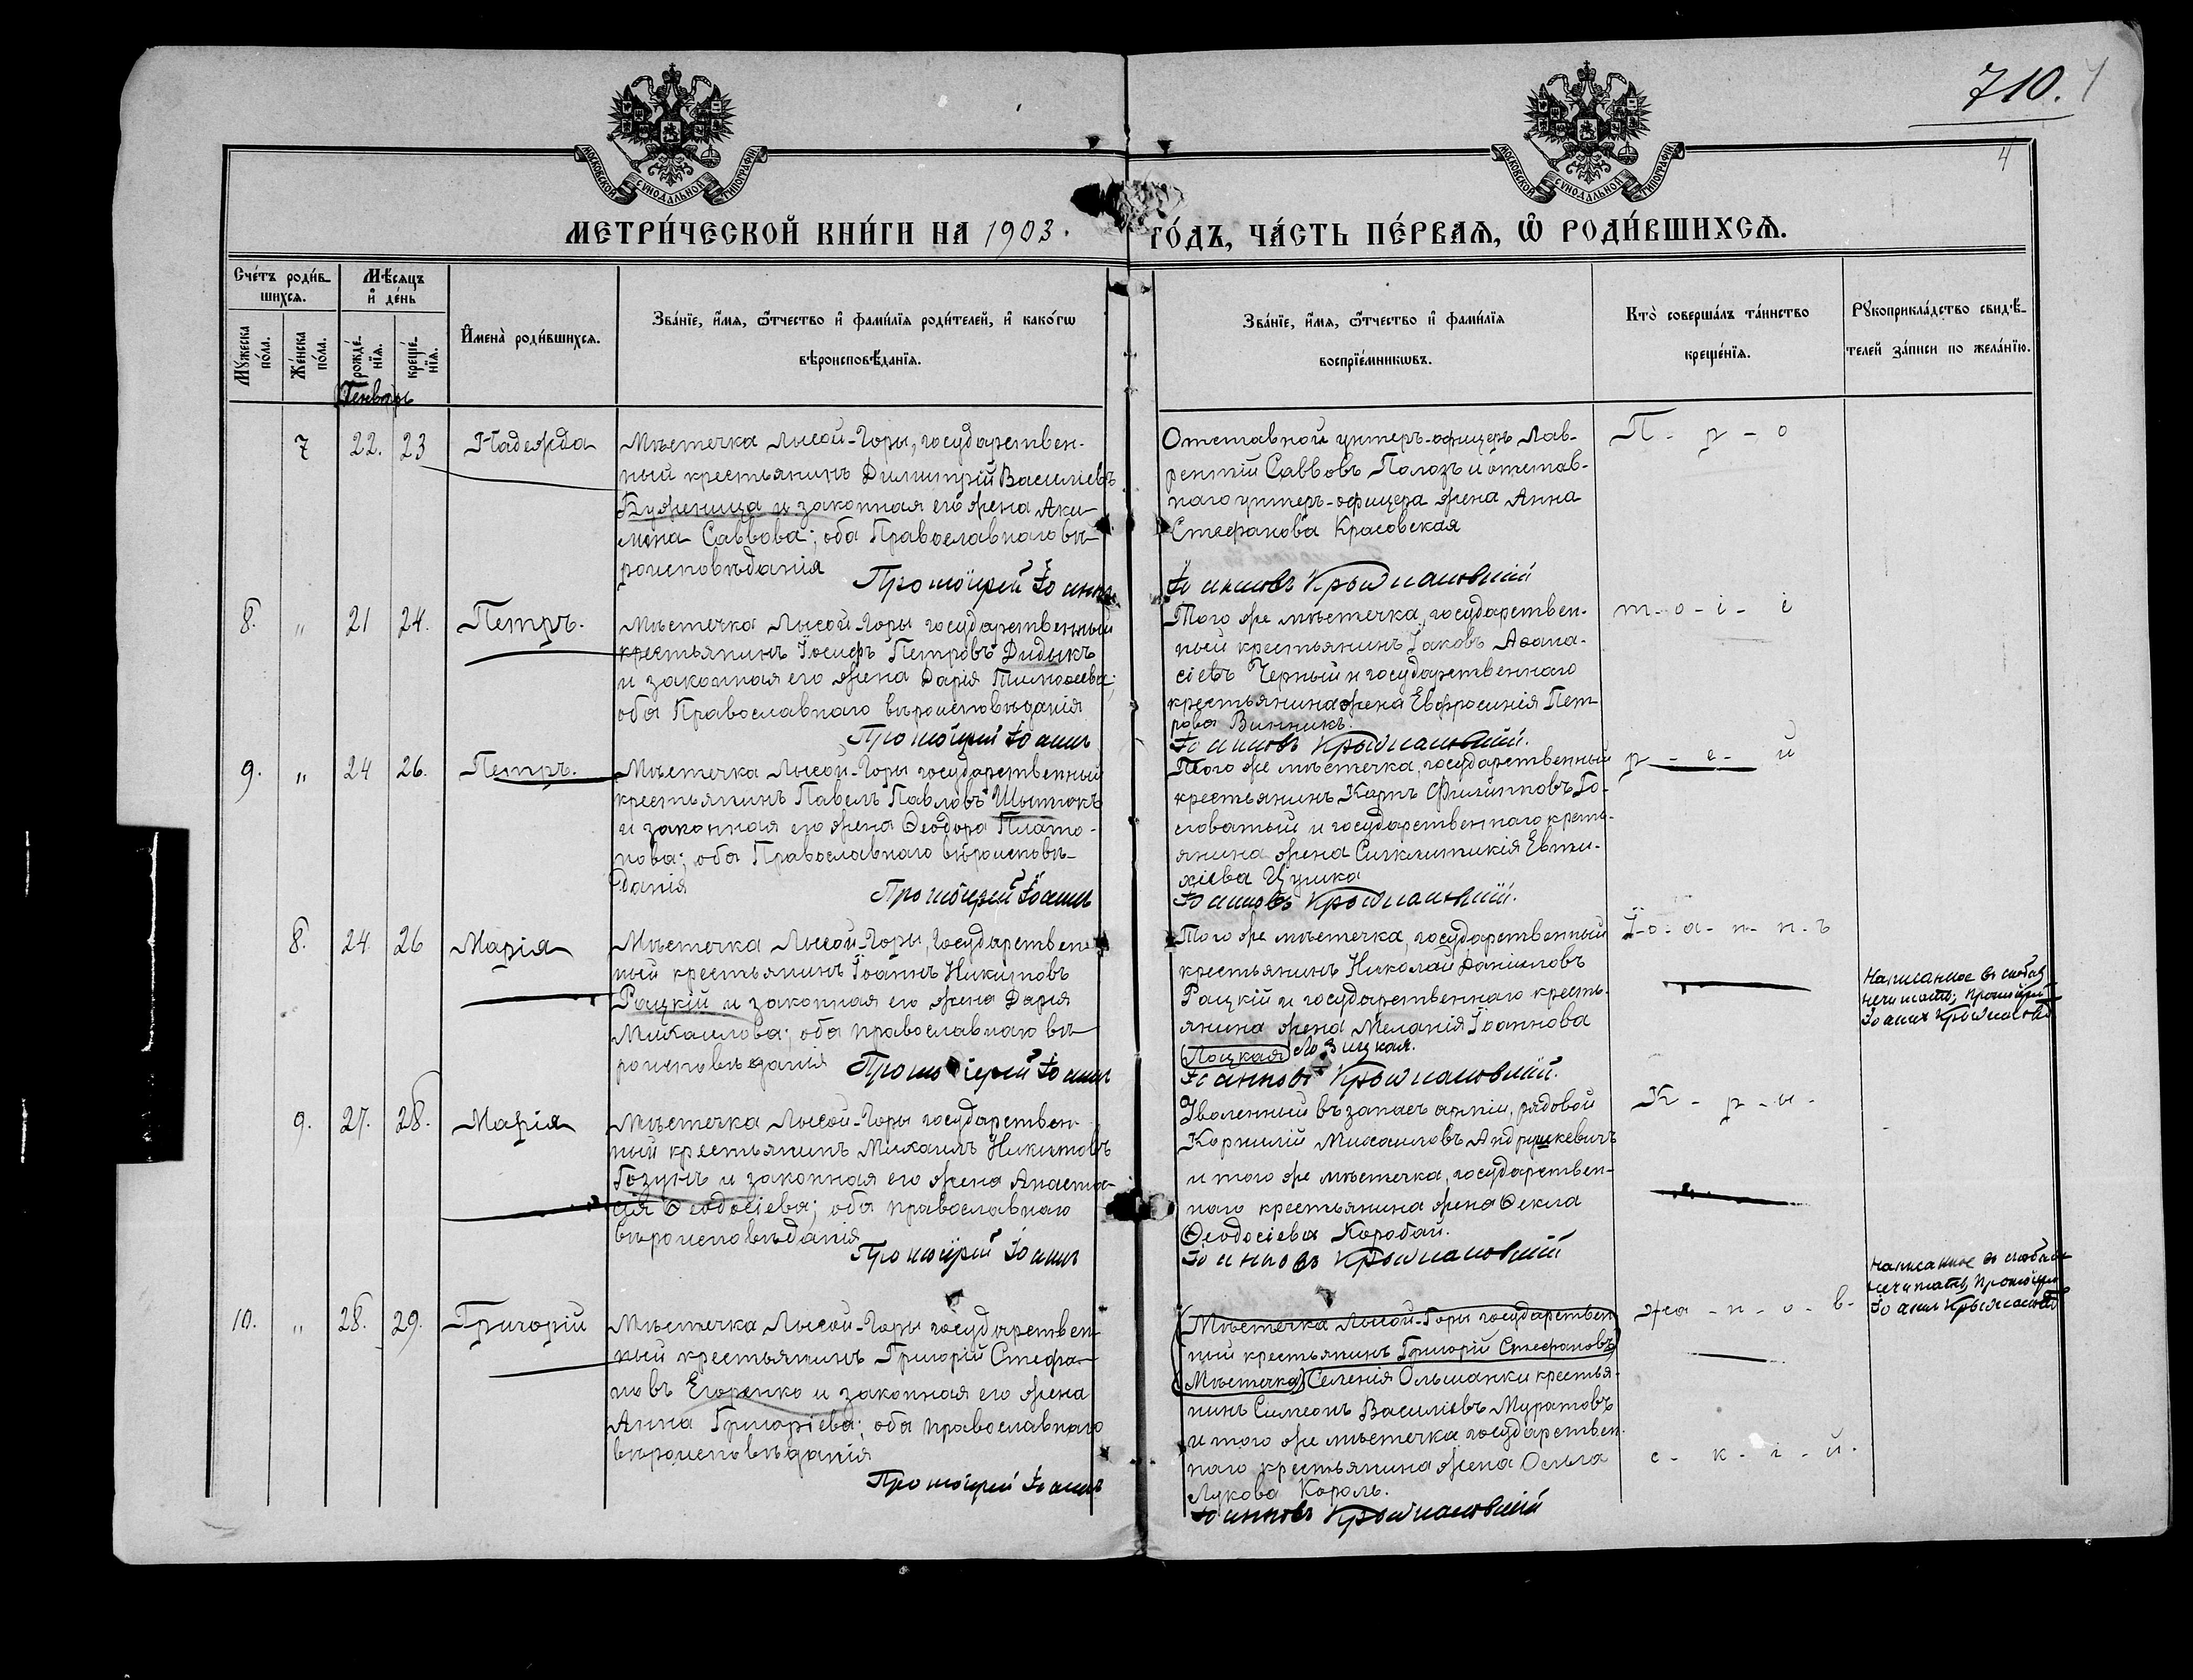 710.
4
МОСКОВСКОЙ СѴНОДАЛЬНОЙ ТИПОГРАФІИ
МОСКОВСКОЙ СѴНОДАЛЬНОЙ ТИПОГРАФІИ
МЕТРИ́ЧЕСКОЙ КНИ́ГИ НА 1903. ГО́ДЪ, ЧА́СТЬ ПЕ́РВАѦ, Ѡ РОДИ́ВШИХСѦ.
Сче́тъ роди́в-
шихсѧ.
Мѣ́сѧцъ
и҆ де́нь
Мꙋ́жеска по́ла.
Же́нска по́ла.
рожде́нїѧ.
креще́нїѧ.
И҆мена̀ роди́вшихсѧ.
Зва́нїе, и҆́мѧ, ѻ҆́тчество и҆ фами́лїѧ роди́телей, и҆ како́гѡ
вѣроисповѣ́данїѧ.
Зва́нїе, и҆́мѧ, ѻ҆́тчество и҆ фами́лїѧ
воспрїе́мникѡвъ.
Кто̀ соверша́лъ та́инство
креще́нїѧ.
Рꙋкоприкла́дство свидѣ́-
телей за́писи по жела́нїю.
Генварь
7 22. 23 Надежда
Мѣстечка Лысой-Горы, государствен-
ный крестьянинъ Димитрій Василіевъ
Буженица и законная его жена Аки-
лина Саввова; оба Православнаго вѣ-
роисповѣданія
Протоіерей Іоаннъ
Отставной унтеръ-офицеръ Лав-
рентій Саввовъ Полозъ и отстав-
наго унтеръ-офицера жена Анна
Стефанова Красовская
Іоанновъ Крыжановскій
П - р - о
8. " 21 24. Петръ.
Мѣстечка Лысой-Горы государственный
крестьянинъ Іосифъ Петровъ Дидыкъ
и законная его жена Дарія Тимоѳеева;
оба Православнаго вѣроисповѣданія
Протоіерей Іоаннъ
Того же мѣстечка, государствен-
ный крестьянинъ Іаковъ Аѳана-
сіевъ Черный и государственнаго
крестьянина жена Евфросинія Пет-
рова Винникъ.
Іоанновъ Крыжановскій.
т - о - і - е
9. " 24 26. Петръ.
Мѣстечка Лысой-Горы государственный
крестьянинъ Павелъ Павловъ Шыток
и законная его жена Ѳеодора Плато-
нова; оба Православнаго вѣроисповѣ-
данія
Протоіерей Іоаннъ
Того же мѣстечка, государственный
крестьянинъ Карпъ Филипповъ Го-
ловатый и государственнаго кресть-
янина жена Синклитикія Евти-
хіева Цушка
Іоанновъ Крыжановскій.
р - е - й
8. 24 26 Марія
Мѣстечка Лысой-Горы, государствен-
ный крестьянинъ Іоаннъ Никитовъ
Рацкій и законная его жена Дарія
Михаилова; оба православнаго вѣ-
роисповѣданія
Протоіерей Іоаннъ
Того же мѣстечка, государственный
крестьянинъ Николай Даніиловъ
Рацкій и государственнаго кресть-
янина жена Меланія Іоаннова
(Лоцкая) Лозицкая.
Іоанновъ Крыжановскій.
І - о - а - н - н - ъ
Написанное въ скобкахъ
не читать; Протоіерей
Іоаннъ Крыжановскій
9. 27. 28. Марія
Мѣстечка Лысой-Горы государствен-
ный крестьянинъ Михаилъ Никитовъ
Гозунъ и законная его жена Анаста-
сія Ѳеодосіева; оба православнаго
вѣроисповѣданія
Протоіерей Іоаннъ
Уволенный въ запасъ арміи, рядовой
Корнилій Михаиловъ Андрушкевичъ
и того же мѣстечка, государствен-
наго крестьянина жена Ѳекла
Ѳеодосіева Коробай.
Іоанновъ Крыжановскій
К - р - ы -
10. " 28. 29. Григорій
Мѣстечка Лысой-Горы государствен-
ный крестьянинъ Григорій Стефа-
новъ Егоренко и законная его жена
Анна Григоріева; оба православнаго
вѣроисповѣданія
Протоіерей Іоаннъ
(Мѣстечка Лысой-Горы государствен-
ный крестьянинъ Григорій Стефановъ)
(Мѣстечка) Селенія Ольшанки крестья-
нинъ Симеонъ Василіевъ Муратовъ
и того же мѣстечка государствен-
наго крестьянина жена Ольга
Лукова Король.
Іоанновъ Крыжановскій
жа - н - о - в -
с - к - і - й.
Написанное въ скобкахъ
не читать, Протоіерей
Іоаннъ Крыжановскій